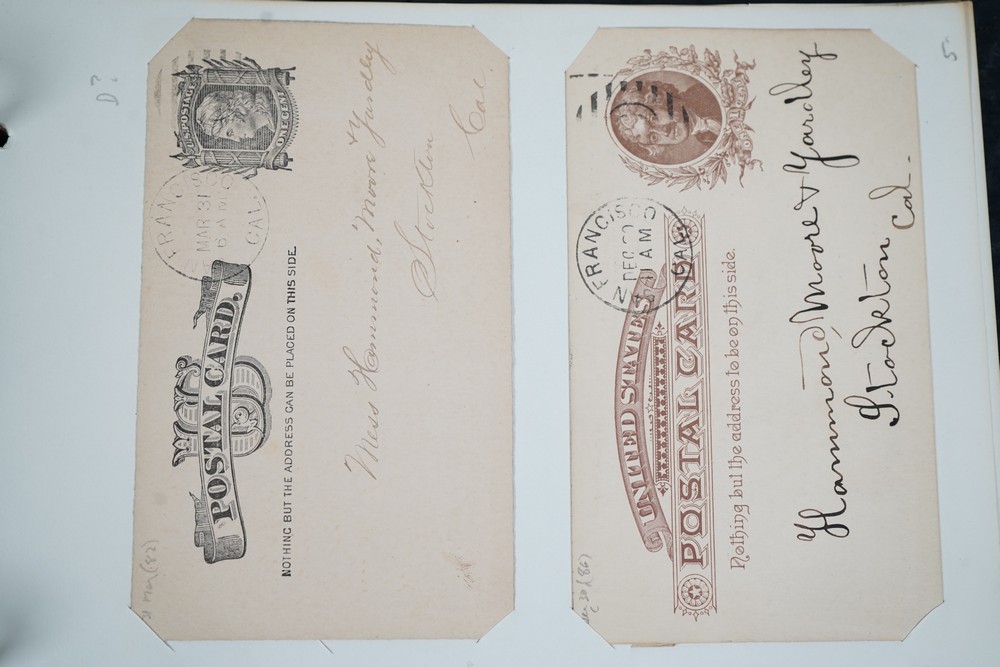 D?
U.S. POSTAGE
ONE CENT
FRANCISCO
MAR 31
6 AM
CAL.
U S
POSTAL CARD.
NOTHING BUT THE ADDRESS CAN BE PLACED ON THIS SIDE.
Mess Hammond, Moore & Yardley
Stockton
Cal
31 Mar (82)
5-
ONE CENT
N FRANCISCO
DEC 30
AM
CAL
UNITED STATES
POSTAL CARD
Nothing but the address to be on this side.
Hammond, Moore & Yardley
Stockton
Cal.